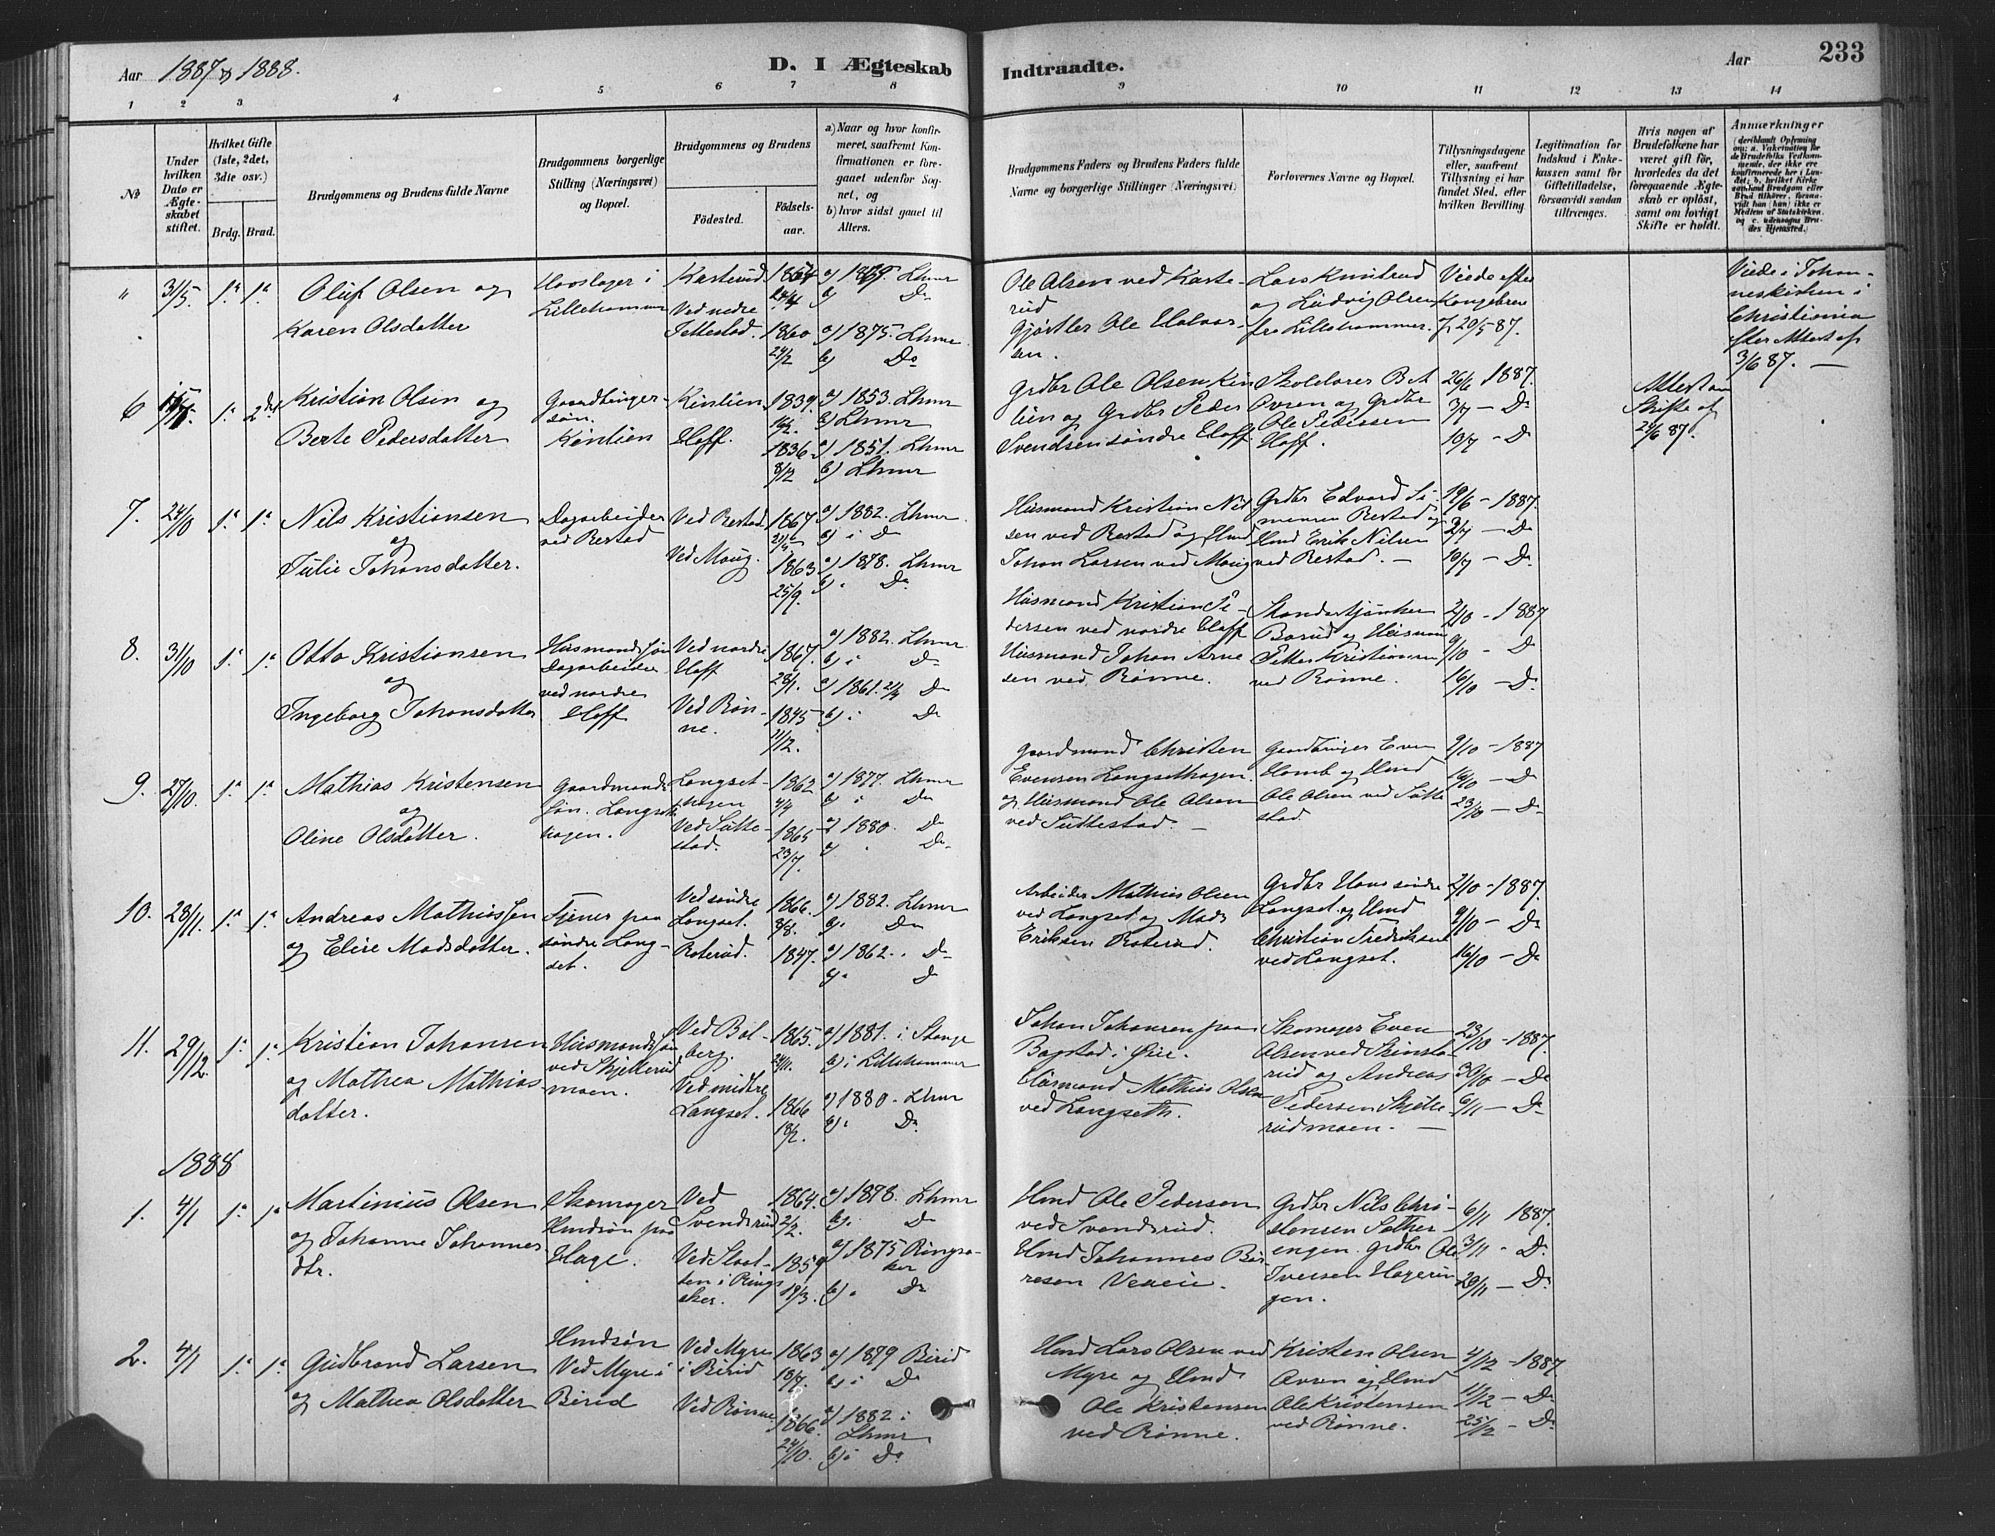 Aar 1887 & 1888.
D. I Ægteskab
Indtraadte.
Aar
233
1 2 3 4 5 6 7 8 9 10 11 12 13 14
No
Under hvilken Dato er Ægteskabet stiftet.
Hvilket Gifte (1ste, 2det, 3die osv.)
Brdg. Brud.
Brudgommens og Brudens fulde Navne
Brudgommens borgerlige Stilling (Næringsvei) og Bopæl.
Brudgommens og Brudens
Födested.
Födselsaar.
a) Naar og hvor konfirmeret, saafremt Konfirmationen er foregaaet udenfor Sognet, og
b) hvor sidst gaaet til Alters.
Brudgommens Faders og Brudens Faders fulde Navne og borgerlige Stillinger (Næringsvei)
Forlovernes Navne og Bopæl.
Tillysningsdagene eller, saafremt Tillysning ei har fundet Sted, efter hvilken Bevilling
Legitimation for Indskud i Enkekassen samt for Giftetilladelse, forsaavidt saadan tiltrænges.
Hvis nogen af Brudefolkene har været gift för, hvorledes da det foregaaende Ægteskab er oplöst, samt om lovligt Skifte er holdt.
Anmærkninger
" 31/5 1ª 1ª Oluf Olsen og
Karen Olsdatter
Hovslager i
Lillehammer
Kasterud
Ved nedre
1854
1860
24/2
a) 1869. Lhmr
b) Do
a) 1875. Lhmr
b) Do
Ole Olsen ved Kasterud
Gjørtler Ole Halvorsen.
Lars Knutsrud
og Ludvig Olsen
fra Lillehammer.
Viede efter
Kongebrev
f. 20/5 87.
Viede i Johanneskirken i
Christiania
efter Attest af
3/6 87. —
6 1ª 2det Kristian Olsen og
Berte Pedersdatter
Gaardbrugersøn
Kinlien
Kinlien
Hoff.
1839.
1836
8/12
a) 1853. Lhmr
b) Lhmr
a) 1851. Lhmr
b) Lhmr
Grdbr Ole Olsen Kinlien og Grdbr Peder
Svendsen søndre Hoff
Skolelærer B A
Ovren og Grdbr
Ole Pedersen
Hoff.
26/6 1887.
3/7 — Do
10/7 — Do
Attest om
Skifte af
87.
7. 24/10 1ª 1ª Nils Kristiansen
og
Julie Johansdatter.
Dagarbeider
ved Restad
Ved Restad
Ved Maug.
1867
1863
25/9.
a) 1882. Lhmr.
b) i Do
a) 1878. Lhmr
b) " Do
Husmand Kristian Nilsen ved Restad og Hmd
Johan Larsen ved Maug
Grdbr Edvard Simensen Restad og
Hmd Erik Nilsen
ved Restad. —
19/6 - 1887.
3/7 — Do
10/7 — Do
8. 31/10 1ª 1ª Otto Kristiansen
og
Ingeborg Johansdatter
Husmandssøn
Dagarbeider
ved nordre
Hoff
Ved nordre
Hoff
Ved Rønne.
1867.
28/1.
1845
11/12.
a) 1882. Lhmr
b) i Do
a) 1861. 21/4 Do
b) i Do
Husmand Kristian Pedersen ved nordre Hoff
Husmand Johan Arnesen ved Rønne.
Standartjunker
Borud og Husmand
Petter Kristiansen
ved Rønne.
2/10 - 1887.
9/10 — Do
16/10 — Do.
9. 27/10. 1ª 1ª Mathias Kristensen
og
Oline Olsdatter.
Gaardmandssøn. Langsethagen.
Langsethagen
Ved Suttestad.
1862
4/4
1865
23/7
a) 1877. Lhmr
b) i Do
a) 1880. Do
b) " Do.
Gaardmand Christen
Evensen Langsethagen.
og Husmand Ole Olsen
ved Suttestad. —
Gaardbruger Even
Homb og Hmd
Ole Olsen ved Suttestad.
9/10 - 1887
16/10 — Do
23/10 — Do
10. 28/11. 1ª 1ª Andreas Mathiassen
og Elise Madsdatter.
Tjener paa
søndre Langset.
Ved søndre
Langset.
Roterud.
1866.
8/8.
1847.
a) 1882. Lhmr
b) " Do
a) 1862. " Do
b) " Do
Arbeider Mathias Olsen
ved Langset og Mads
Eriksen Roterud.
Grdbr Hans søndre
Langset og Hmd
Christian Fredriksen
ved Langset.
2/10 - 1887.
9/10 — Do
16/10 — Do
11. 29/12. 1ª 1ª Kristian Johansen
og Mathea Mathiasdatter.
Husmandssøn
ved Skjellerudmoen.
Ved Bolberg.
Ved midtre
Langset.
1865.
24/11.
1866
18/2.
a) 1881. i Stange
b) i Lillehammer
a) 1880. Lhmr
b) " Do.
Johan Johansen paa
Bagstad i Øier.
Husmand Mathias Olsen
ved Langseth.
Skomager Even
Olsen ved Stenslorud og Andreas
Pedersen Skjellerudmoen. —
23/10 - 1887.
30/10 — Do
6/11 — Do
1888
1. 4/1 1ª 1ª Martinius Olsen
og Johanne Johannesdtr.
Skomager
Hmdsøn paa
Hage.
Ved
Svendsrud
Ved Slaatten i Ringsaker.
1864.
2/2.
1859
19/3.
a) 1878. Lhmr
b) " Do
a) 1875 Ringsaker
b) " Do
Hmd Ole Pedersen
ved Svendsrud.
Hmd Johannes Børresen
Grdbr Nils Christensen Sætherengen. Grdbr Ole
Iversen
6/11 1887.
— Do.
20/11 — Do
2. 4/1 1ª 1ª Gudbrand Larsen
og Mathea Olsdatter
Hmdsøn
Ved Myre i
Birid
Ved Myre
i Birid
Ved Rønne
1863
10/7.
1866.
24/10.
a) 1879 Birid
b) i Do
a) 1882 i
Lhmr
b) i Do
Hmd Lars Olsen ved
Myre og Hmd
Ole Kristensen
ved Rønne.
Kristen Olsen
Ovren og Hmd
Ole Kristensen
ved Rønne.
4/12 - 1887.
11/12 — Do
25/12 — Do